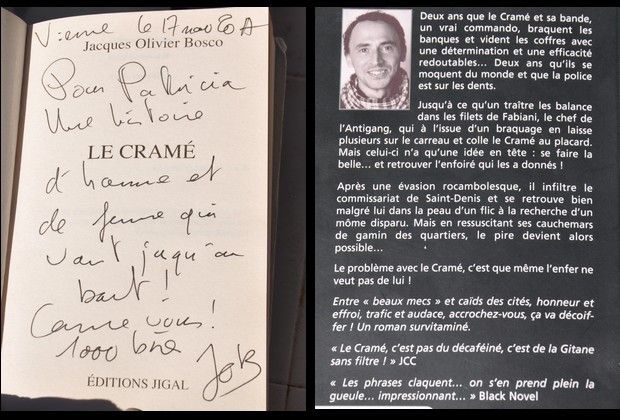 Vienne le 17 mai 20
Jacques Olivier Bosco
Pour Patricia
Une histoire
LE CRAMÉ
d'homme et
de femme qui
vont jusqu'au
bout !
Comme vous !
1000 bises
JOB
ÉDITIONS JIGAL
Deux ans que le Cramé et sa bande,
un vrai commando, braquent les
banques et vident les coffres avec
une détermination et une efficacité
redoutables... Deux ans qu'ils se
moquent du monde et que la police
est sur les dents.
Jusqu'à ce qu'un traître les balance
dans les filets de Fabiani, le chef de
l'Antigang, qui à l'issue d'un braquage en laisse
plusieurs sur le carreau et colle le Cramé au placard.
Mais celui-ci n'a qu'une idée en tête : se faire la
belle... et retrouver l'enfoiré qui les a donnés !
Après une évasion rocambolesque, il infiltre le
commissariat de Saint-Denis et se retrouve bien
malgré lui dans la peau d'un flic à la recherche d'un
môme disparu. Mais en ressuscitant ses cauchemars
de gamin des quartiers, le pire devient alors
possible...
Le problème avec le Cramé, c'est que même l'enfer ne
veut pas de lui !
Entre « beaux mecs » et caïds des cités, honneur et
effroi, trafic et audace, accrochez-vous, ça va décoif-
fer ! Un roman survitaminé.
« Le Cramé, c'est pas du décaféiné, c'est de la Gitane
sans filtre ! » JCC
« Les phrases claquent... on s'en prend plein la
gueule... impressionnant... » Black Novel